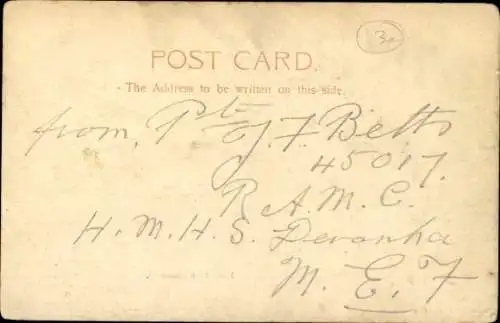 3-
POST CARD.
The Address to be written on this side.
from, Pte J. F. Betts
45017.
R.A.M.C.
H.M.H.S. Devanha
M.E.F